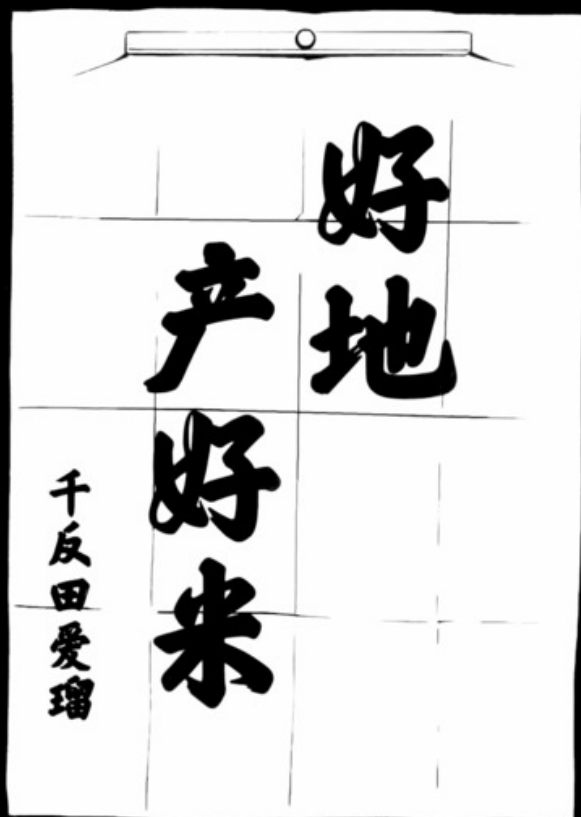 好地
产好米
千反田爱瑠